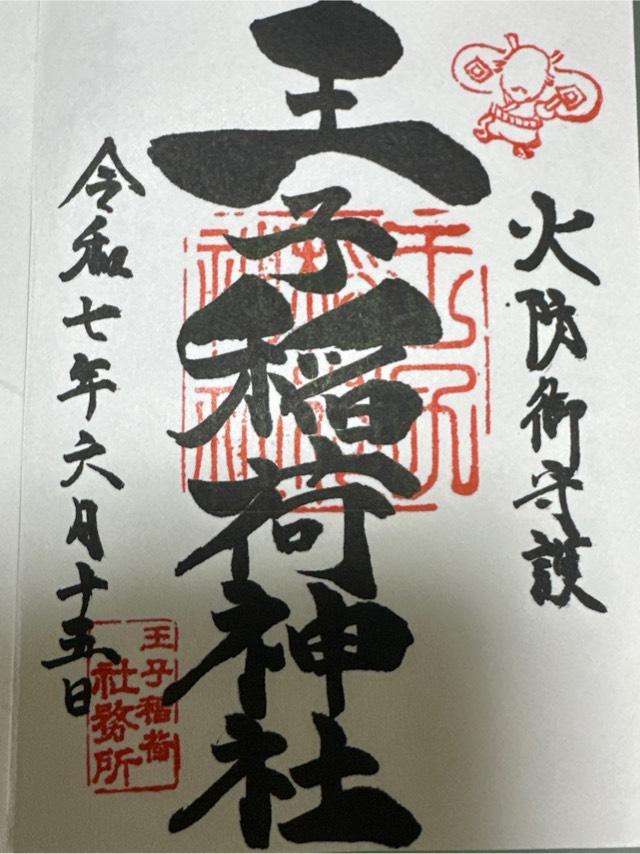 火防御守護
王子稲荷神社
令和七年六月十五日
王子稲荷
社務所